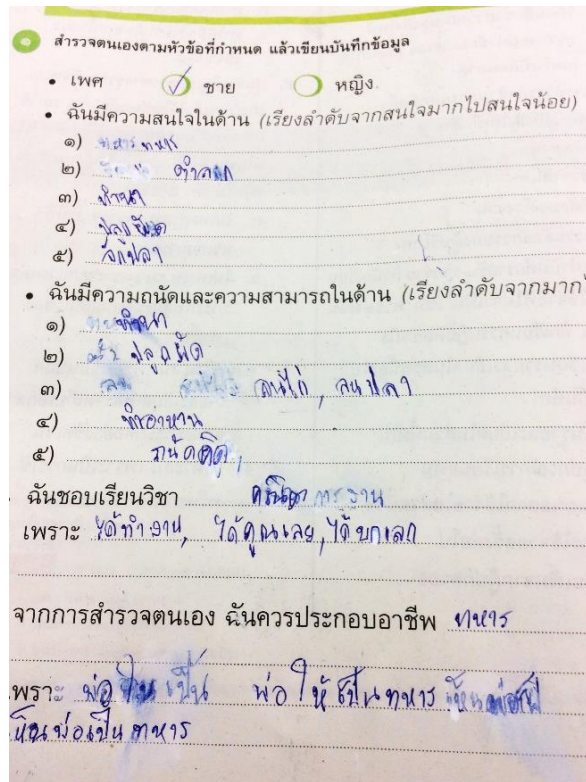 ๑ สำรวจตนเองตามหัวข้อที่กำหนด แล้วเขียนบันทึกข้อมูล
• เพศ ชาย หญิง
• ฉันมีความสนใจในด้าน (เรียงลำดับจากสนใจมากไปสนใจน้อย)
๑) ทหาร
๒) ตำรวจ
๓) ทำนา
๔) ปลูกผัด
๕)
• ฉันมีความถนัดและความสามารถในด้าน (เรียงลำดับจากมาก
๑) ทำนา
๒) ปลูกผัด
๓)
๔) ทำอาหาน
๕)
ฉันชอบเรียนวิชา การงาน
เพราะ ได้ทำงาน, ได้คูณเลย, ได้บกเลก
จากการสำรวจตนเอง ฉันควรประกอบอาชีพ ทหาร
เพราะ พ่อ เป็น พ่อให้เป็นทหาร
เห็นพ่อเป็นทหาร